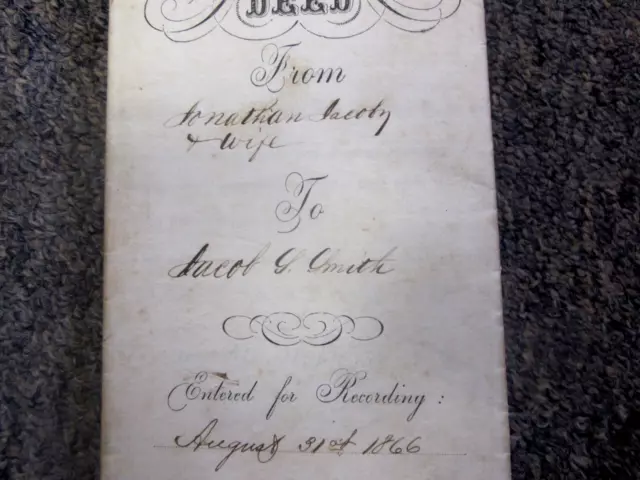 DEED
From
Jonathan Jacoby
& Wife
To
Jacob G. Smith
Entered for Recording:
August 31st 1866